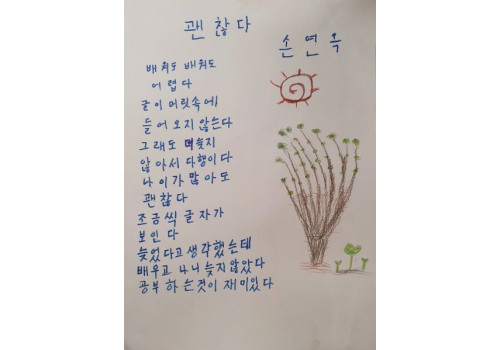 괜찮다
손연옥
배워도 배워도
어렵다
글이 머릿속에
들어오지 않는다
그래도 늦지
않아서 다행이다
나이가 많아도
괜찮다
조금씩 글자가
보인다
늦었다고 생각했는데
배우고 나니 늦지 않았다
공부 하는것이 재미있다